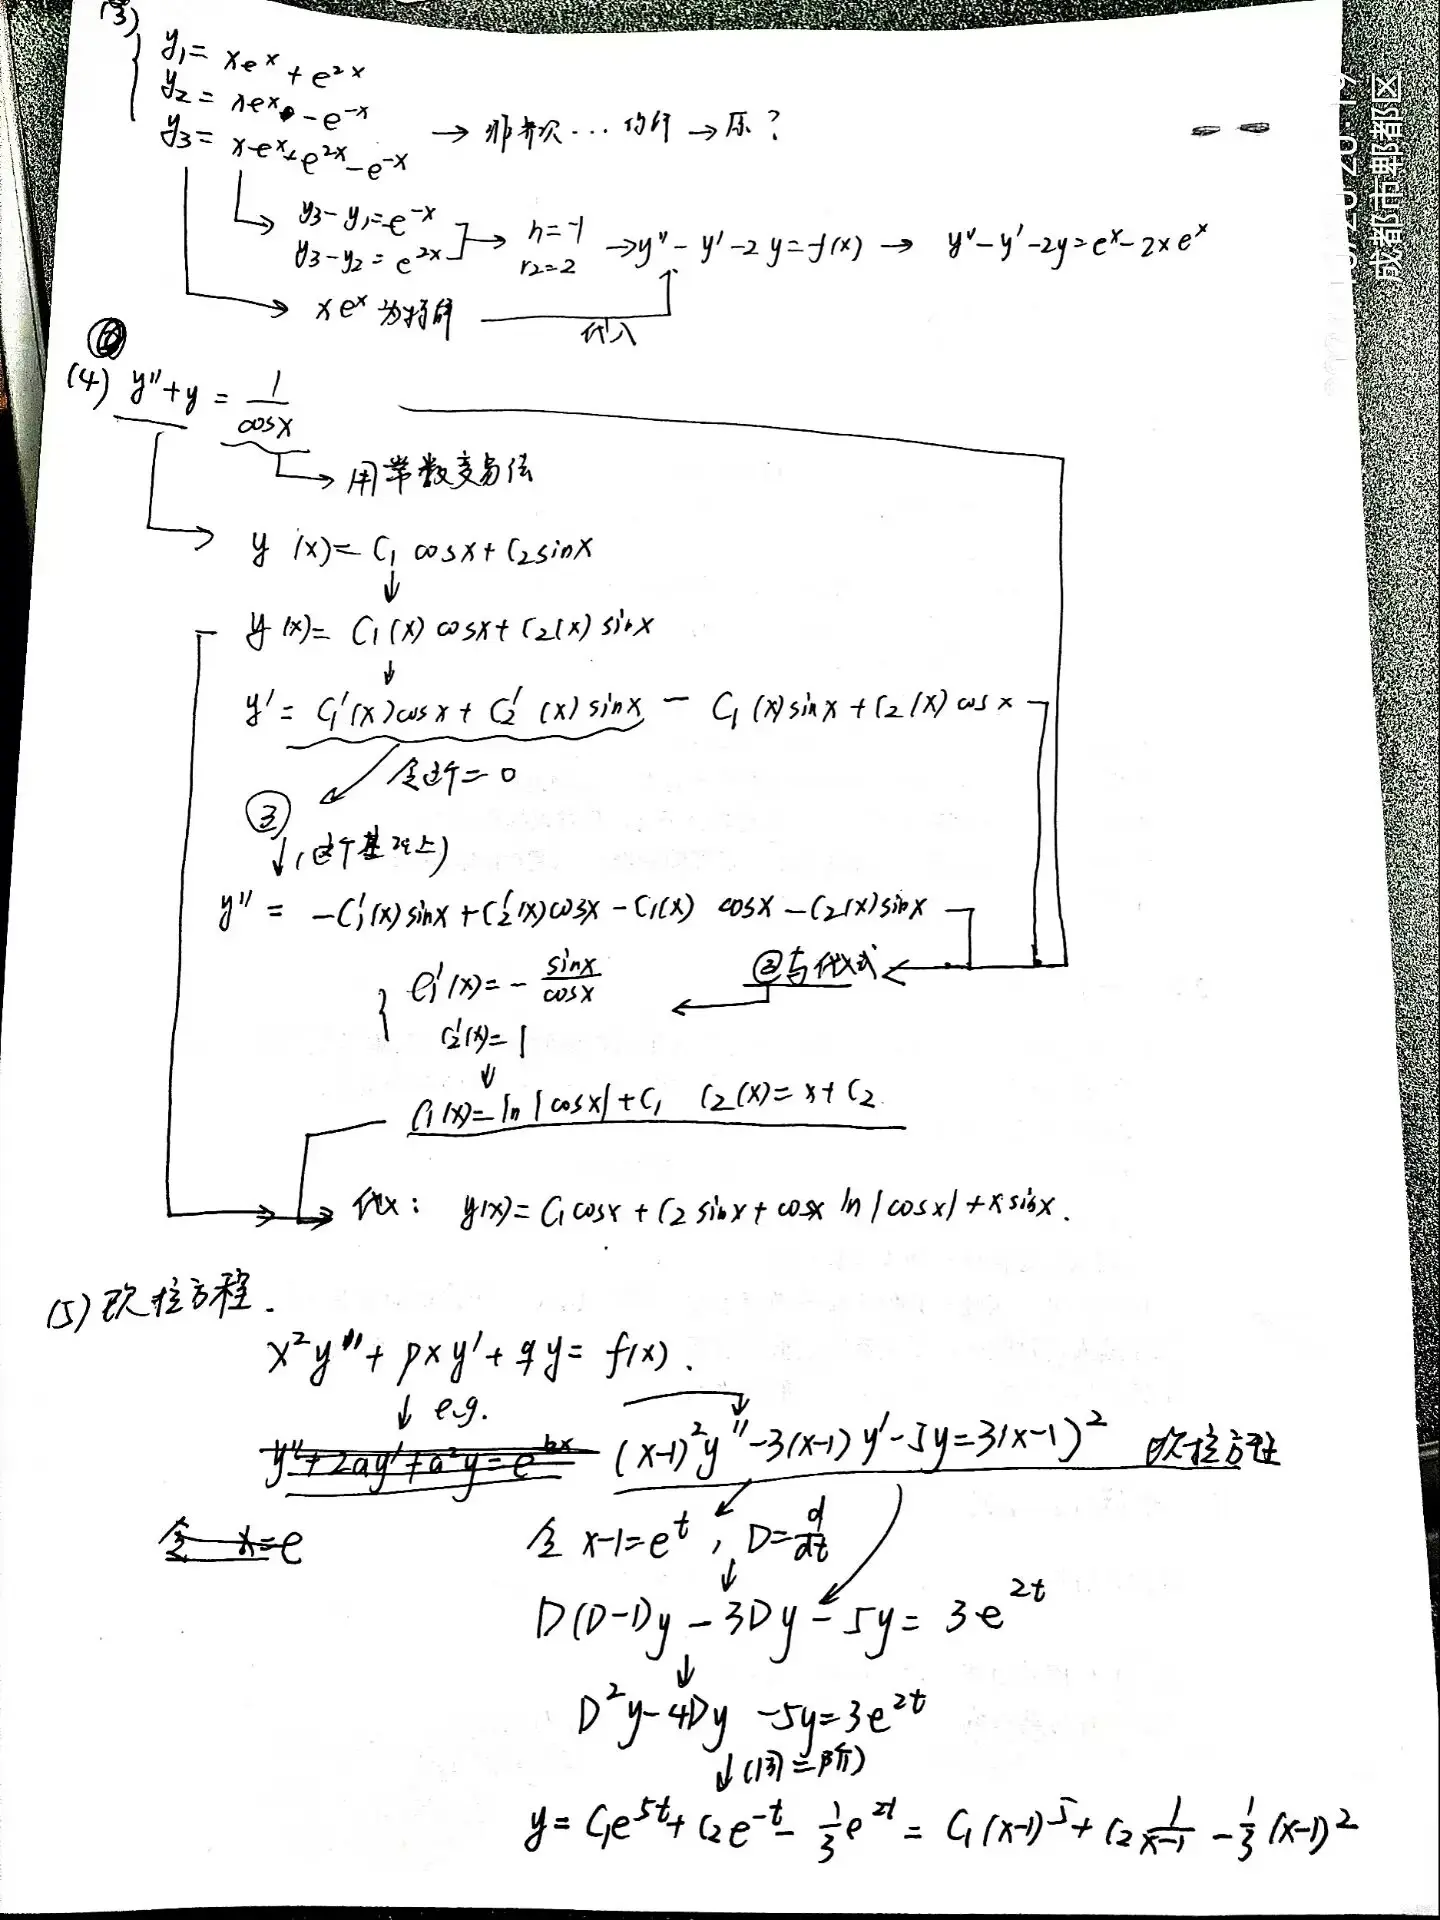 (3)
y₁= xeˣ + e²ˣ
y₂= xeˣ - e⁻ˣ
y₃= xeˣ+e²ˣ-e⁻ˣ → 非齐次…的解 → 原?
y₃-y₁=-e⁻ˣ
y₃-y₂=e²ˣ → r₁=-1 r₂=2 → y''-y'-2y=f(x) → y''-y'-2y=eˣ-2xeˣ
xeˣ为特解 代入
(4) y''+y = 1/cosx
→ 用常数变易法
y(x)= C₁cosx+C₂sinx
↓
y(x)= C₁(x)cosx+C₂(x)sinx
↓
y'= C₁'(x)cosx+C₂'(x)sinx - C₁(x)sinx+C₂(x)cosx
令这个=0
③
↓(这个基础上)
y''= -C₁'(x)sinx+C₂'(x)cosx-C₁(x)cosx-C₂(x)sinx
C₁'(x)=-sinx/cosx ③与代入式
C₂'(x)=1
↓
C₁(x)=ln|cosx|+C₁ C₂(x)=x+C₂
代入: y(x)=C₁cosx+C₂sinx+cosx ln|cosx|+xsinx.
(5) 欧拉方程.
x²y''+pxy'+qy=f(x).
↓ e.g.
y''+2ay'+a²y=e (x-1)²y''-3(x-1)y'-5y=3(x-1)² 欧拉方程
令 x=e 令 x-1=eᵗ, D=d/dt
↓
D(D-1)y-3Dy-5y=3e²ᵗ
↓
D²y-4Dy-5y=3e²ᵗ
↓(同二阶)
y=C₁e⁵ᵗ+C₂e⁻ᵗ-1/3e²ᵗ=C₁(x-1)⁵+C₂1/(x-1)-1/3(x-1)²
成都市郫都区